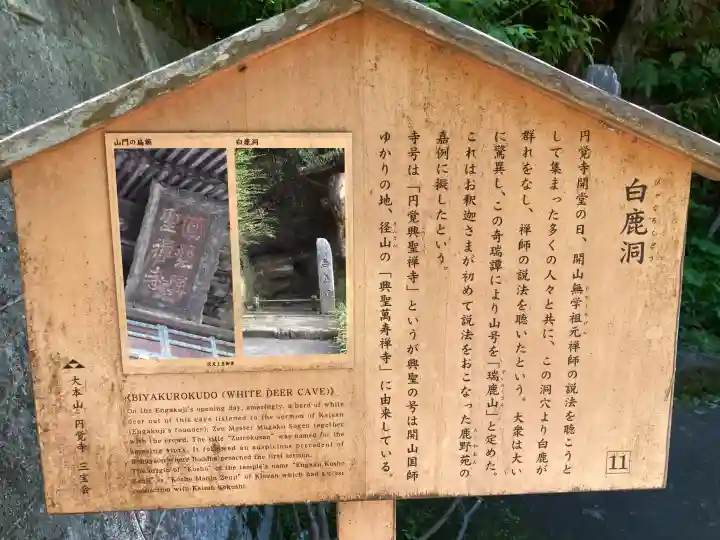 白鹿洞
びゃくろくどう
円覚寺開堂の日、開山無学祖元禅師の説法を聴こうと
して集まった多くの人々と共に、この洞穴より白鹿が
群れをなし、禅師の説法を聴いたという。大衆は大い
に驚異し、この奇瑞譚により山号を「瑞鹿山」と定めた。
これはお釈迦さまが初めて説法をおこなった鹿野苑の
嘉例に擬したという。
寺号は「円覚興聖禅寺」というが興聖の号は開山国師
ゆかりの地、径山の「興聖萬寿禅寺」に由来している。
11
山門の扁額
白鹿洞
《BIYAKUROKUDO (WHITE DEER CAVE)》
On the Engakuji's opening day, amazingly, a herd of white
deer out of this cave listened to the sermon of Kaisan
(Engakuji's founder), Zen Master Mugaku Sogen together
with the crowd. The title "Zuirokusan" was named for the
amazing story. It followed an auspicious precedent of
where Buddha preached the first sermon.
The origin of "Kosho" of the temple's name "Engaku Kosho
Zenji" is "Kosho Manju Zenji" of Kinzan which had a close
connection with Kaisan Kokushi.
大本山 円覚寺 三宝会